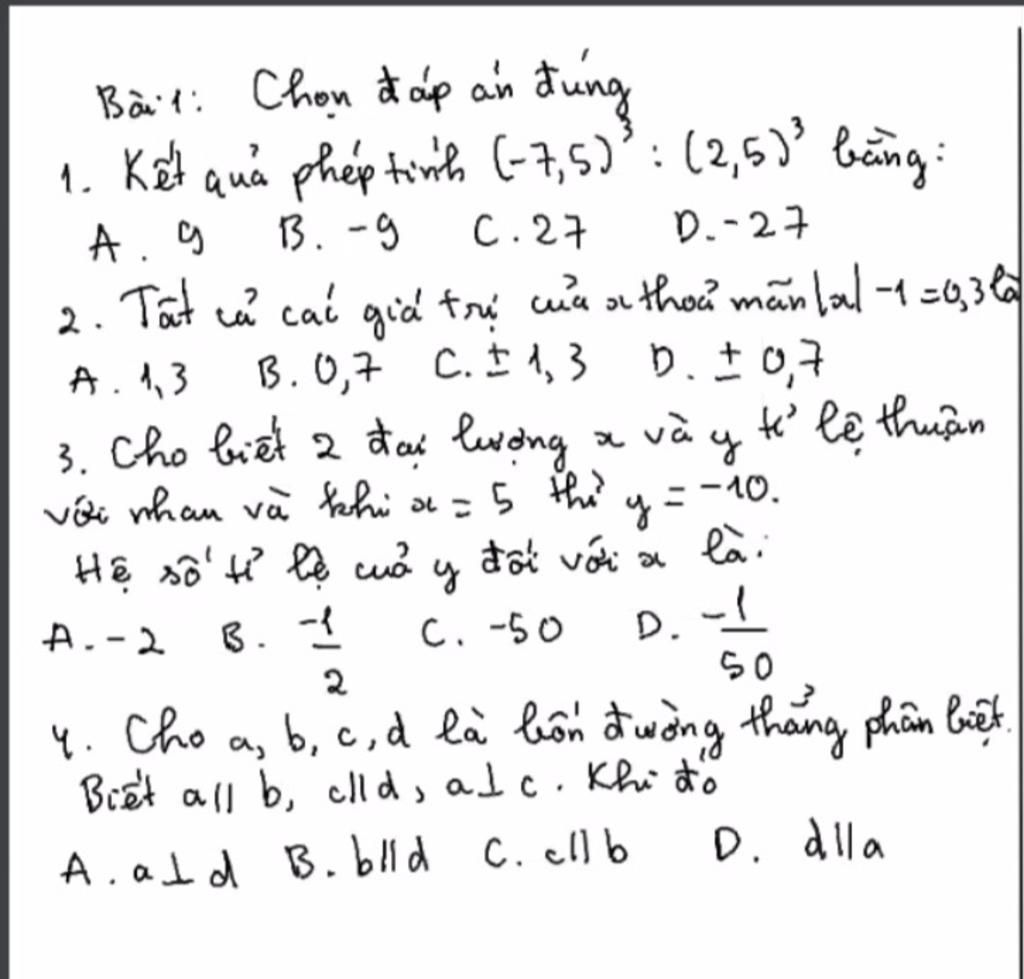 Bài 1: Chọn đáp án đúng
1. Kết quả phép tính (-7,5)³ : (2,5)³ bằng:
A. 9 B. -9 C. 27 D. -27
2. Tất cả các giá trị của x thoả mãn |x| -1 = 0,3 là
A. 1,3 B. 0,7 C. ± 1,3 D. ± 0,7
3. Cho biết 2 đại lượng x và y tỉ lệ thuận
với nhau và khi x = 5 thì y = -10.
Hệ số tỉ lệ của y đối với x là:
A. -2 B. -1/2 C. -50 D. -1/50
4. Cho a, b, c, d là bốn đường thẳng phân biệt.
Biết a // b, c//d, a⊥c. Khi đó
A. a⊥d B. b//d C. c//b D. d//a